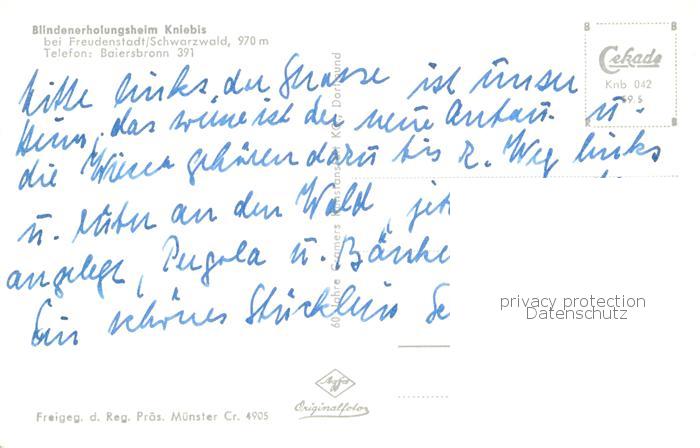 Blindenerholungsheim Kniebis
bei Freudenstadt/Schwarzwald, 970 m
Telefon: Baiersbronn 391
Cekade
Knb 042
Mitte links der Strasse ist unser
Heim, das weisse ist der neue Anbau. u.
die Wiesen gehören dazu bis z. Weg links
u. rüber an den Wald, jet
angelegt, Pergola u. Bänke
Ein schönes Stücklein
60 Jahre Cramers Kunstanstalt KG, Dortmund
privacy protection
Datenschutz
Agfa
Originalfoto
Freigeg. d. Reg. Präs. Münster Cr. 4905